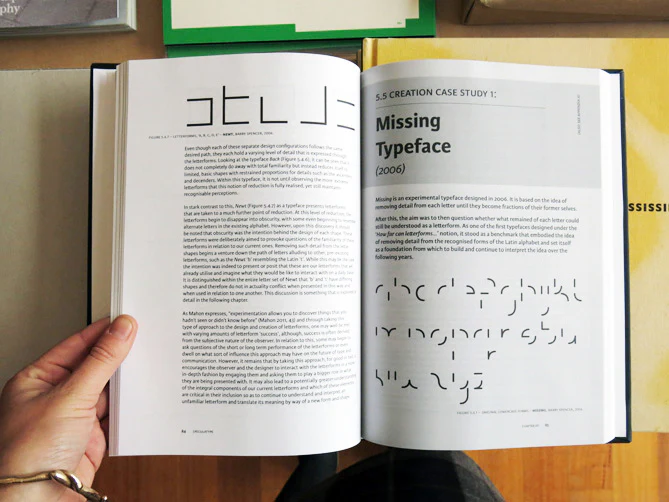 phy
FIGURE 5.4.7 – LETTERFORMS, 'A, B, C, D, E' – NEWT, BARRY SPENCER, 2006.
Even though each of these separate design configurations follows the same
desired path, they each hold a varying level of detail that is expressed through
the letterforms. Looking at the typeface Back (Figure 5.4.6), it can be seen
does not completely do away with total familiarity but instead reduces
limited, basic shapes with restrained proportions for details such as the
and decenders. Within this typeface, it is not until observing the more
letterforms that this notion of reduction is fully realised, yet still maintains
recognisable perceptions.
In stark contrast to this, Newt (Figure 5.4.7) as a typeface presents letterforms
that are taken to a much further point of reduction. At this level of reduction, the
letterforms begin to disappear into obscurity, with some even beginning to
alternate letters in the existing alphabet. However, upon this discovery it should
be noted that obscurity was the intention behind the design of each shape.
letterforms were deliberately aimed to provoke questions of the familiarity of
letterforms in relation to our current ones. Removing each detail from the
shapes begins a venture down the path of letters alluding to other pre-existing
letterforms, such as the Newt 'b' resembling the Latin 't'. While this may be the case
the intention was indeed to present or posit that these are our letterforms that we
already utilise and imagine what they would be like to interact with on a daily basis.
It is distinguished within the entire letter set of Newt that 'b' and 't' have differing
shapes and therefore do not in actuality conflict when presented in this way and
when used in relation to one another. This discussion is something that is
detail in the following chapter.
As Mahon expresses, "experimentation allows you to discover things that you
hadn't seen or didn't know before" (Mahon 2011, 43) and through taking this
type of approach to the design and creation of letterforms, one may well be met
with varying amounts of letterform 'success', although, success is often derived
from the subjective nature of the observer. In relation to this, some may begin to
ask questions of the short or long term performance of the letterforms or even
dwell on what sort of influence this approach may have on the future of
communication. However, it remains that by taking this approach, for good or
encourages the observer and the designer to interact with the letterforms in a
depth fashion by engaging them and asking them to play a bigger role in what
they are being presented with. It may also lead to a potentially greater
of the integral components of our current letterforms and which of these
are critical in their inclusion so as to continue to understand and interpret an
unfamiliar letterform and translate its meaning by way of a new form and
64
5.5 CREATION CASE STUDY 1:
Missing
Typeface
(2006)
Missing is an experimental typeface designed in 2006. It is based on the idea of
removing detail from each letter until they become fractions of their former selves.
After this, the aim was to then question whether what remained of each letter could
still be understood as a letterform. As one of the first typefaces designed under the
"how far can letterforms..." notion, it stood as a benchmark that embodied the idea
of removing detail from the recognised forms of the Latin alphabet and set itself
as a foundation from which to build and continue to interpret the idea over the
following years.
SSISSI